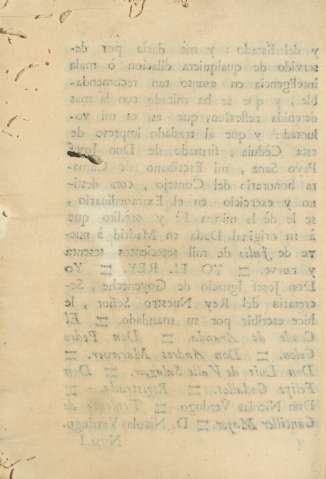 y del Estado : y me daria por de-
servido de qualquiera dilacion ò mala
inteligencia en asunto tan recomenda-
ble , y que se ha mirado con la mas
detenida reflexion, que asi es mi vo-
luntad: y que al traslado impreso de
esta Cédula , firmado de Don Josef
Payo Sanz , mi Escribano de Cama-
ra honorario del Consejo , con desti-
no y exercicio en el Extraordinario ,
se le dé la misma fé y credito que
à su original. Dada en Madrid à nue-
ve de Julio de mil setecientos sesenta
y nueve. = YO EL REY. = Yo
Don Josef Ignacio de Goyeneche , Se-
cretario del Rey Nuestro Señor , le
hice escribir por su mandado. = El
Conde de Aranda. = Don Pedro
Colon. = Don Andres Maraver. =
Don Luis de Valle Salazar. = Don
Felipe Codallos. = Registrada. =
Don Nicolas Verdugo. = Teniente de
Canciller Mayor. = D. Nicolas Verdugo.